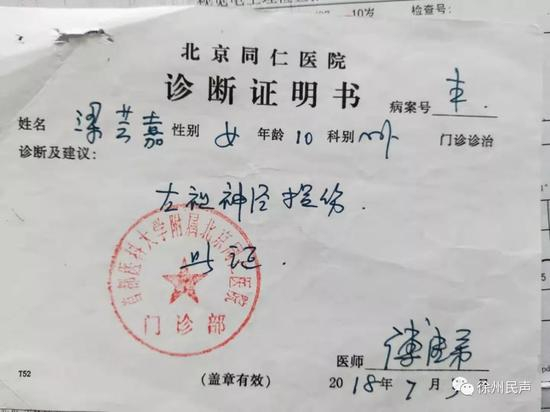 10岁
检查号:
北京同仁医院
诊断证明书
病案号
姓名 梁芸嘉 性别 女 年龄 10 科别 门诊诊治
诊断及建议:
左视神经损伤.
此证.
首都医科大学附属北京同仁医院
门诊部
医师
T52
(盖章有效)
2018年7月 日
徐州民声